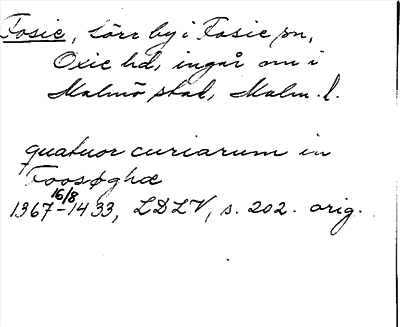 Fosie, Lörr by i Fosie sn,
Oxie hd, ingår nu i
Malmö stad, Malm. l.
quatuor curiarum in
Foosøghæ
16/8
1367-1433, LDLV, s. 202. orig.